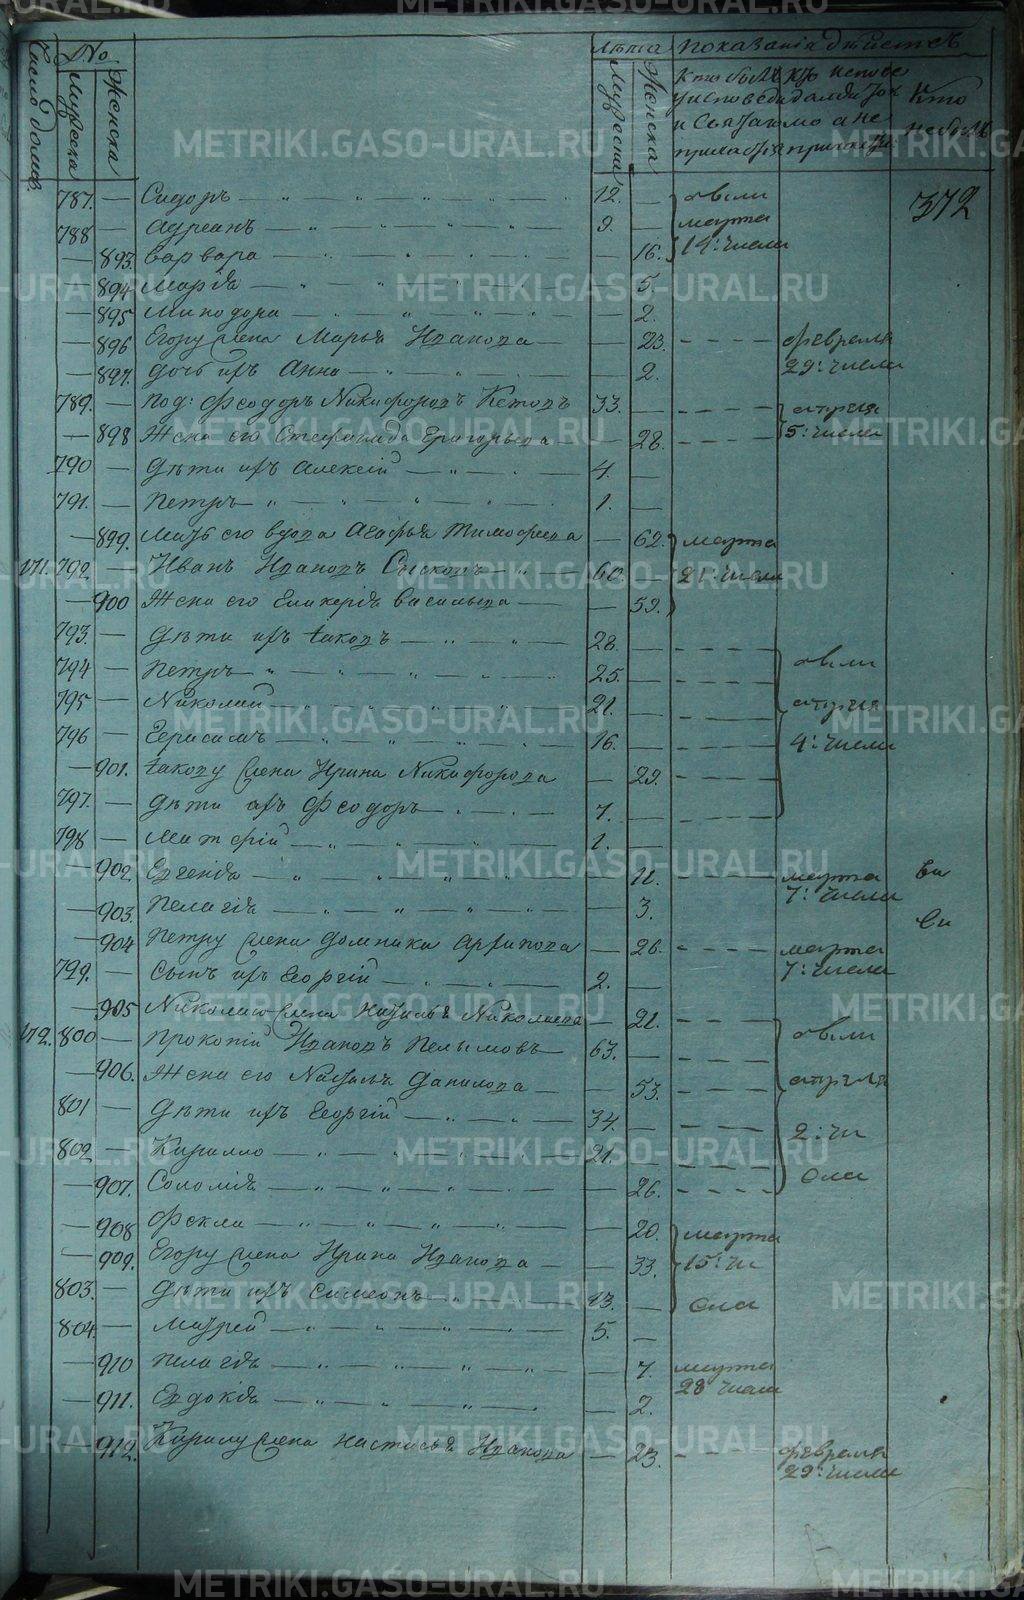 Число домов.
No
Мужеска
Женска
Лѣта
Мужеска
Женска
показанiя дѣйств
Кто
не был
372
787. — Сидоръ — 12. — явили
788 — Адреанъ — 9. — марта
— 893. варвара — 16. 14: числа
— 894 Марiя — 5.
— 895 Минодора — 2.
— 896 Егору жена Марья Иванова — 23. февраля
— 897. дочь ихъ Анна — 2. 29: числа
789. — под: Феодоръ Никифоровъ Кетовъ 33. — апреля
— 898 Жена его Стефанида Григорьева — 28. 5: числа
790 — дѣти ихъ Алексiй — 4. —
791. — Петръ — 1. —
— 899. Мать его вдова Агафья Тимофеева — 62. марта
171. 792 — Иванъ Ивановъ Сысковъ 60. — 21: числа
— 900 Жена его Гликерiя васильева — 59.
793. — дѣти ихъ Iаковъ — 28. —
794 — Петръ — 25. — явили
795 — Николай — 21. — апреля
796 — Герасимъ — 16. — 4: числа
— 901. Iакову жена Ирина Никифорова — 29.
797. — дѣти ихъ Феодоръ — 7. —
798 — 1. —
— 902. Евгенiя — 11. марта
— 903. Пелагiя — 3. 7: числа
— 904 Петру жена Домника Архипова — 26. марта
799. — Сынъ ихъ Георгiй — 2. — 7: числа
— 905 Николаю жена Наталья Николаева — 21.
172. 800 — Прокопiй Ивановъ Пелымовъ 63. — явили
— 906. Жена его Наталья Данилова — 53. апреля
801 — дѣти ихъ Георгiй — 34. —
802 — Кирилло — 21. — 2: чи
— 907. Соломiя — 26. сла
— 908 Фекла — 20. марта
— 909. Егору жена Ирина Иванова — 33. 15: чи
803. — дѣти ихъ Симеонъ 13. — сла
804. — Матвей — 5. —
— 910 Пелагiя — 7. марта
— 911. Евдокiя — 2. 28 числа
— 912. Кирилу жена Настасья Иванова — 23. февраля
29: числа
METRIKI.GASO-URAL.RU